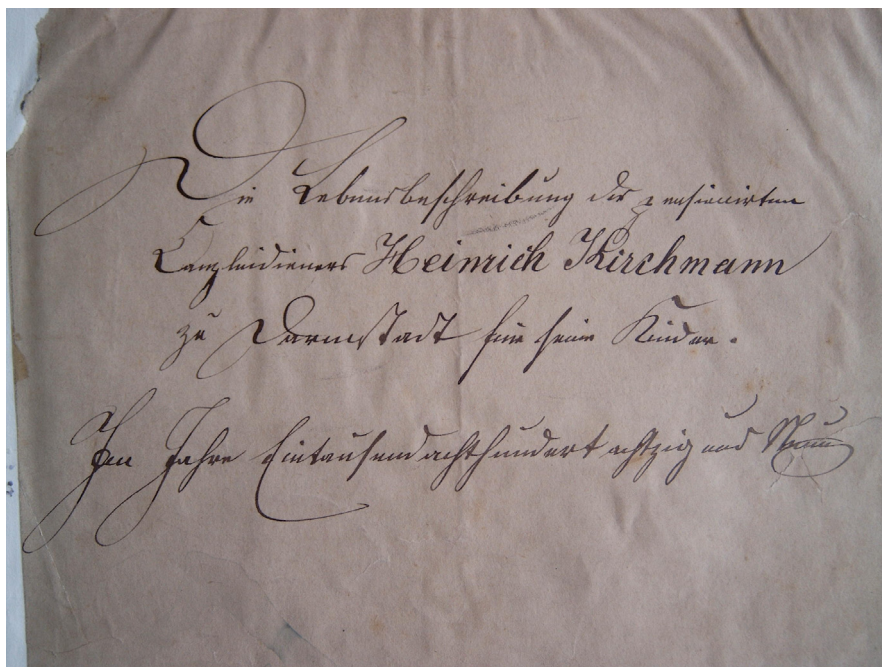 Die Lebensbeschreibung des pensionirten
Canzleidieners Heinrich Kirchmann
zu Darmstadt für seine Kinder.
Im Jahre Eintausendachthundert achtzig und